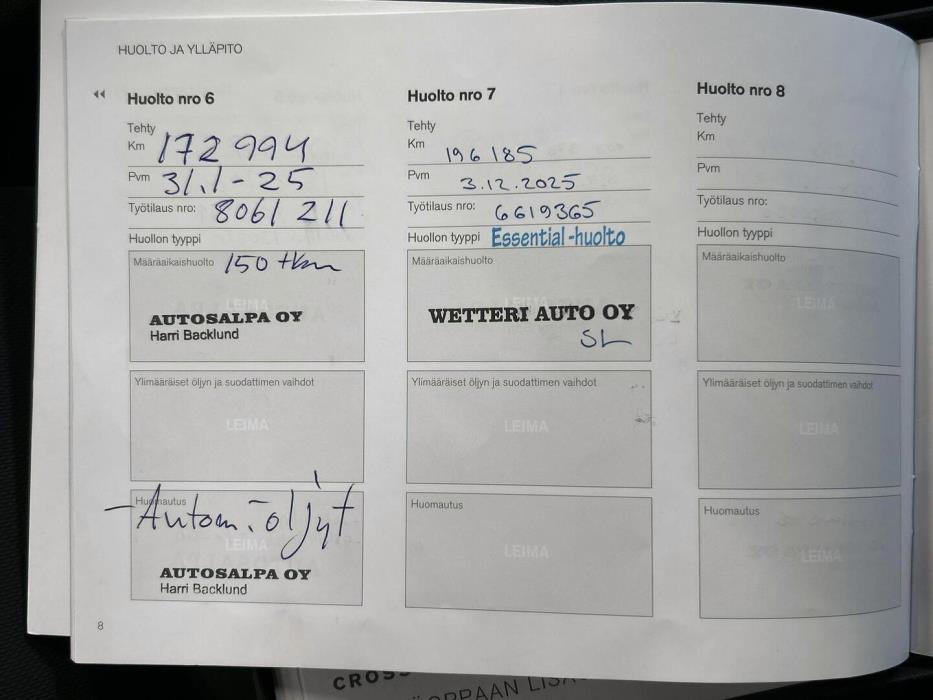 HUOLTO JA YLLÄPITO
Huolto nro 6
Tehty
Km 172 994
Pvm 31.1-25
Työtilaus nro: 8061 211
Huollon tyyppi
Määräaikaishuolto 150 tkm
LEIMA
AUTOSALPA OY
Harri Backlund
Ylimääräiset öljyn ja suodattimen vaihdot
LEIMA
Huomautus
- Autom. öljyt
LEIMA
AUTOSALPA OY
Harri Backlund
Huolto nro 7
Tehty
Km 196 185
Pvm 3.12.2025
Työtilaus nro: 6619365
Huollon tyyppi Essential-huolto
Määräaikaishuolto
LEIMA
WETTERI AUTO OY
SL
Ylimääräiset öljyn ja suodattimen vaihdot
LEIMA
Huomautus
LEIMA
Huolto nro 8
Tehty
Km
Pvm
Työtilaus nro:
Huollon tyyppi
Määräaikaishuolto
LEIMA
Ylimääräiset öljyn ja suodattimen vaihdot
LEIMA
Huomautus
LEIMA
8
CROSS